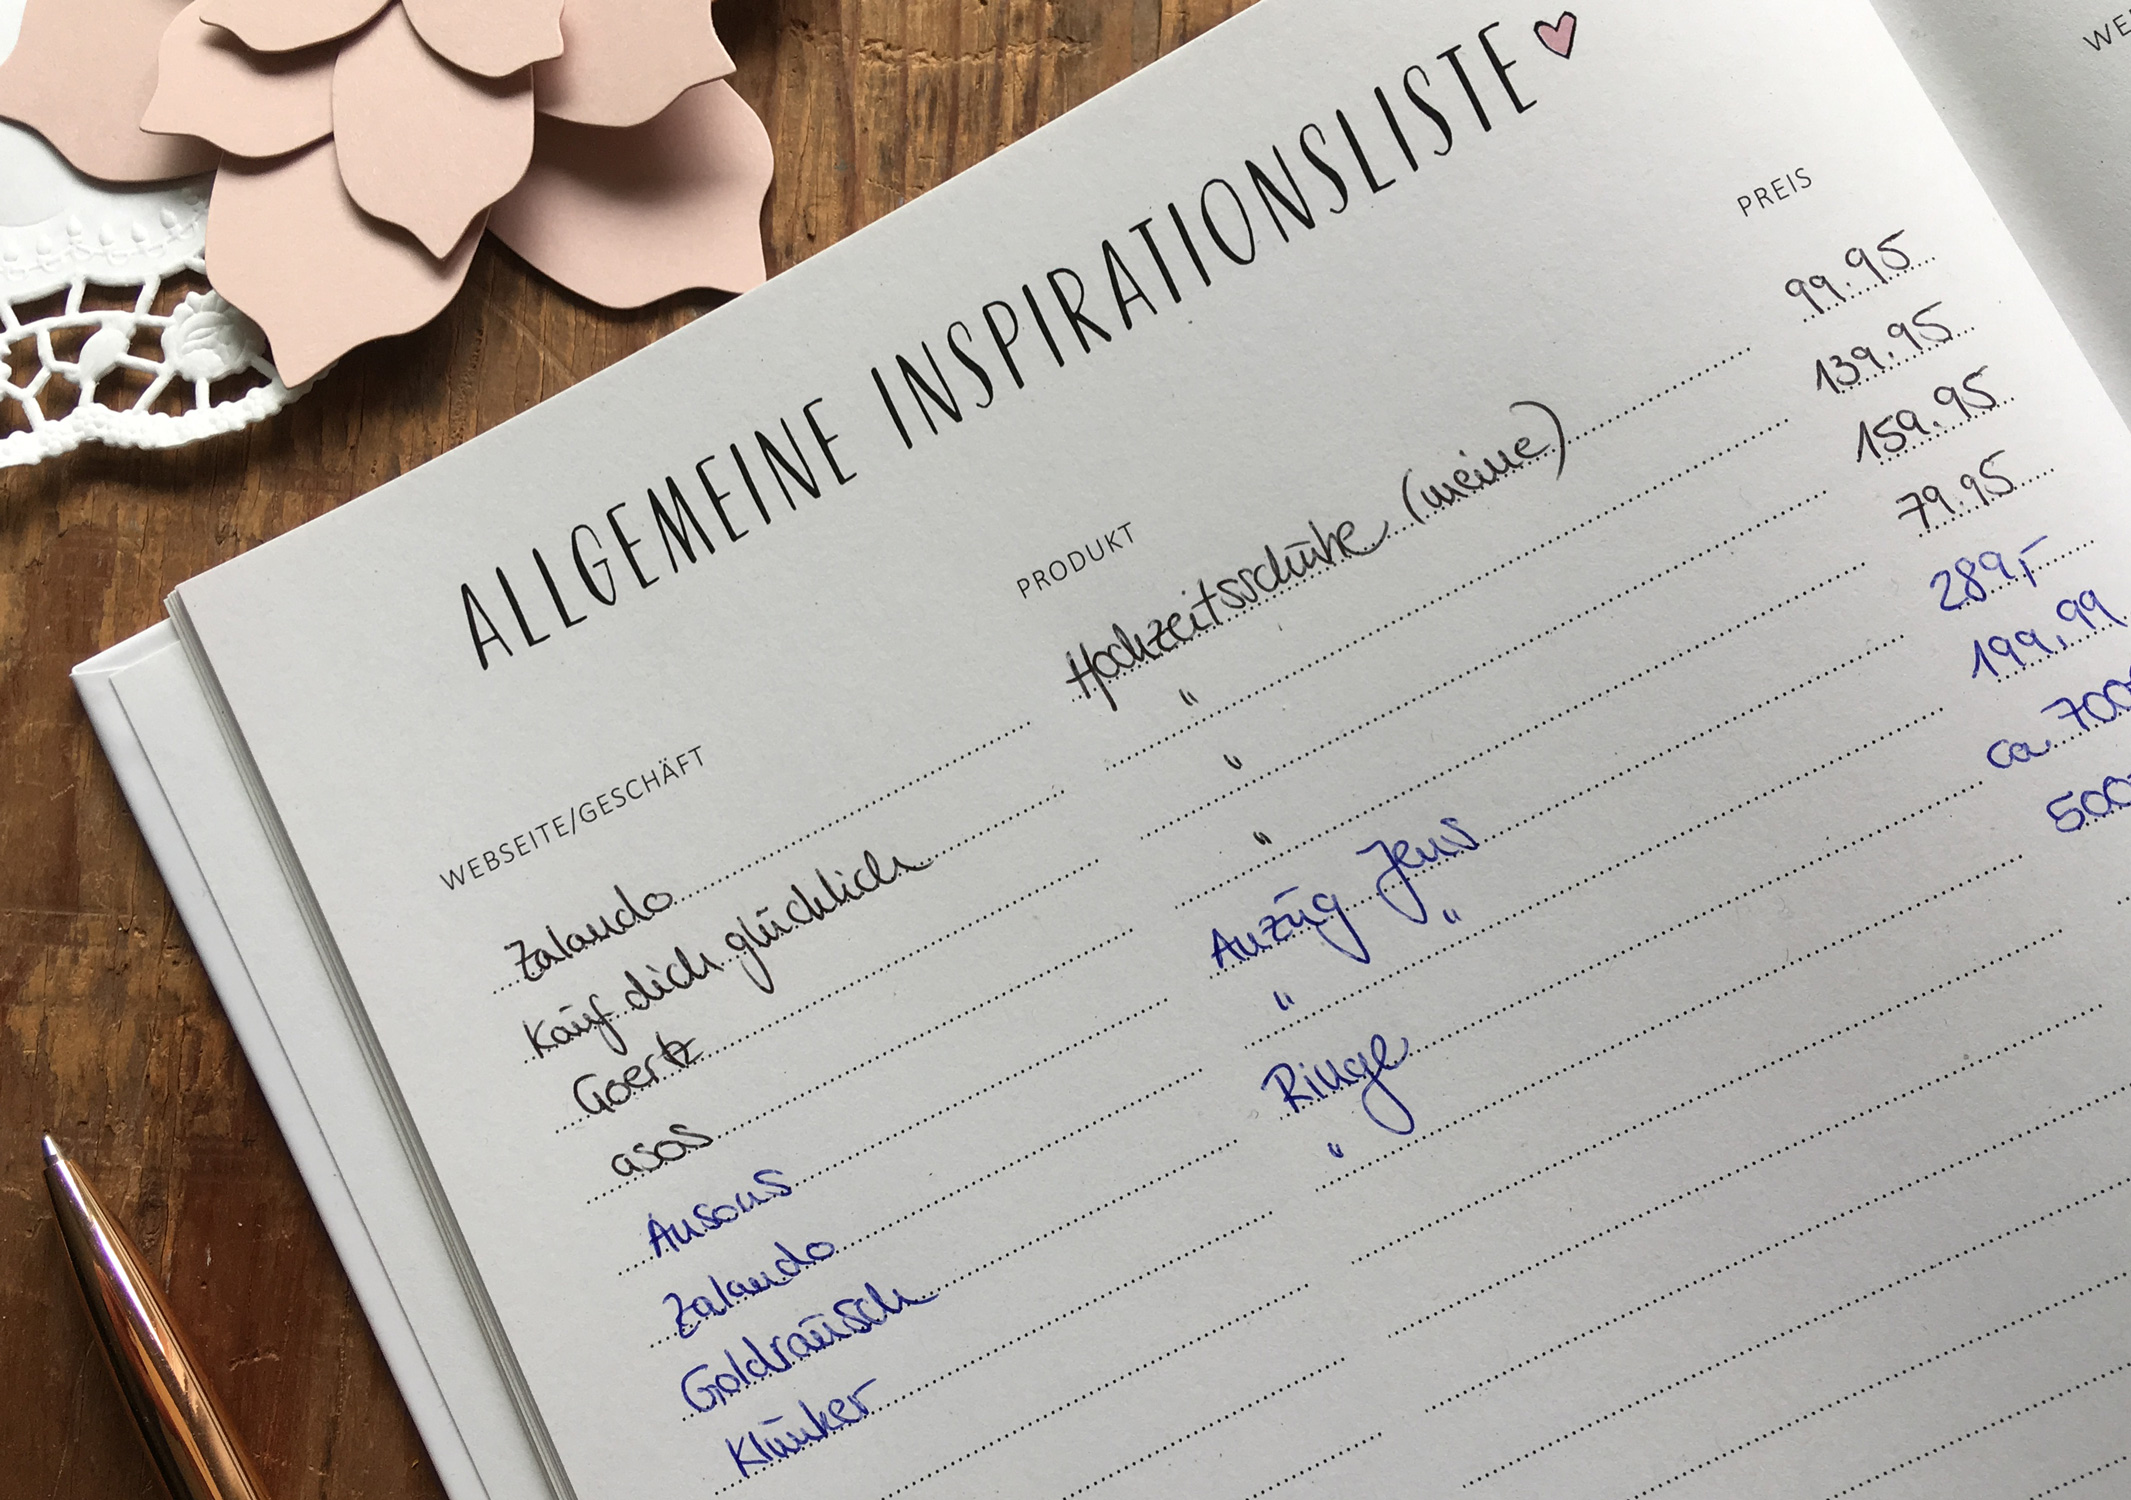 ALLGEMEINE INSPIRATIONSLISTE
WEBSEITE/GESCHÄFT PRODUKT PREIS
Zalando Hochzeitsschuhe (meine) 99.95
Kauf dich glücklich " 139.95
Goertz " 159.95
asos " 79.95
Ansons Anzug Jens 289,-
Zalando " " 199,99
Goldrausch Ringe ca. 700
Klunker " 500
WE